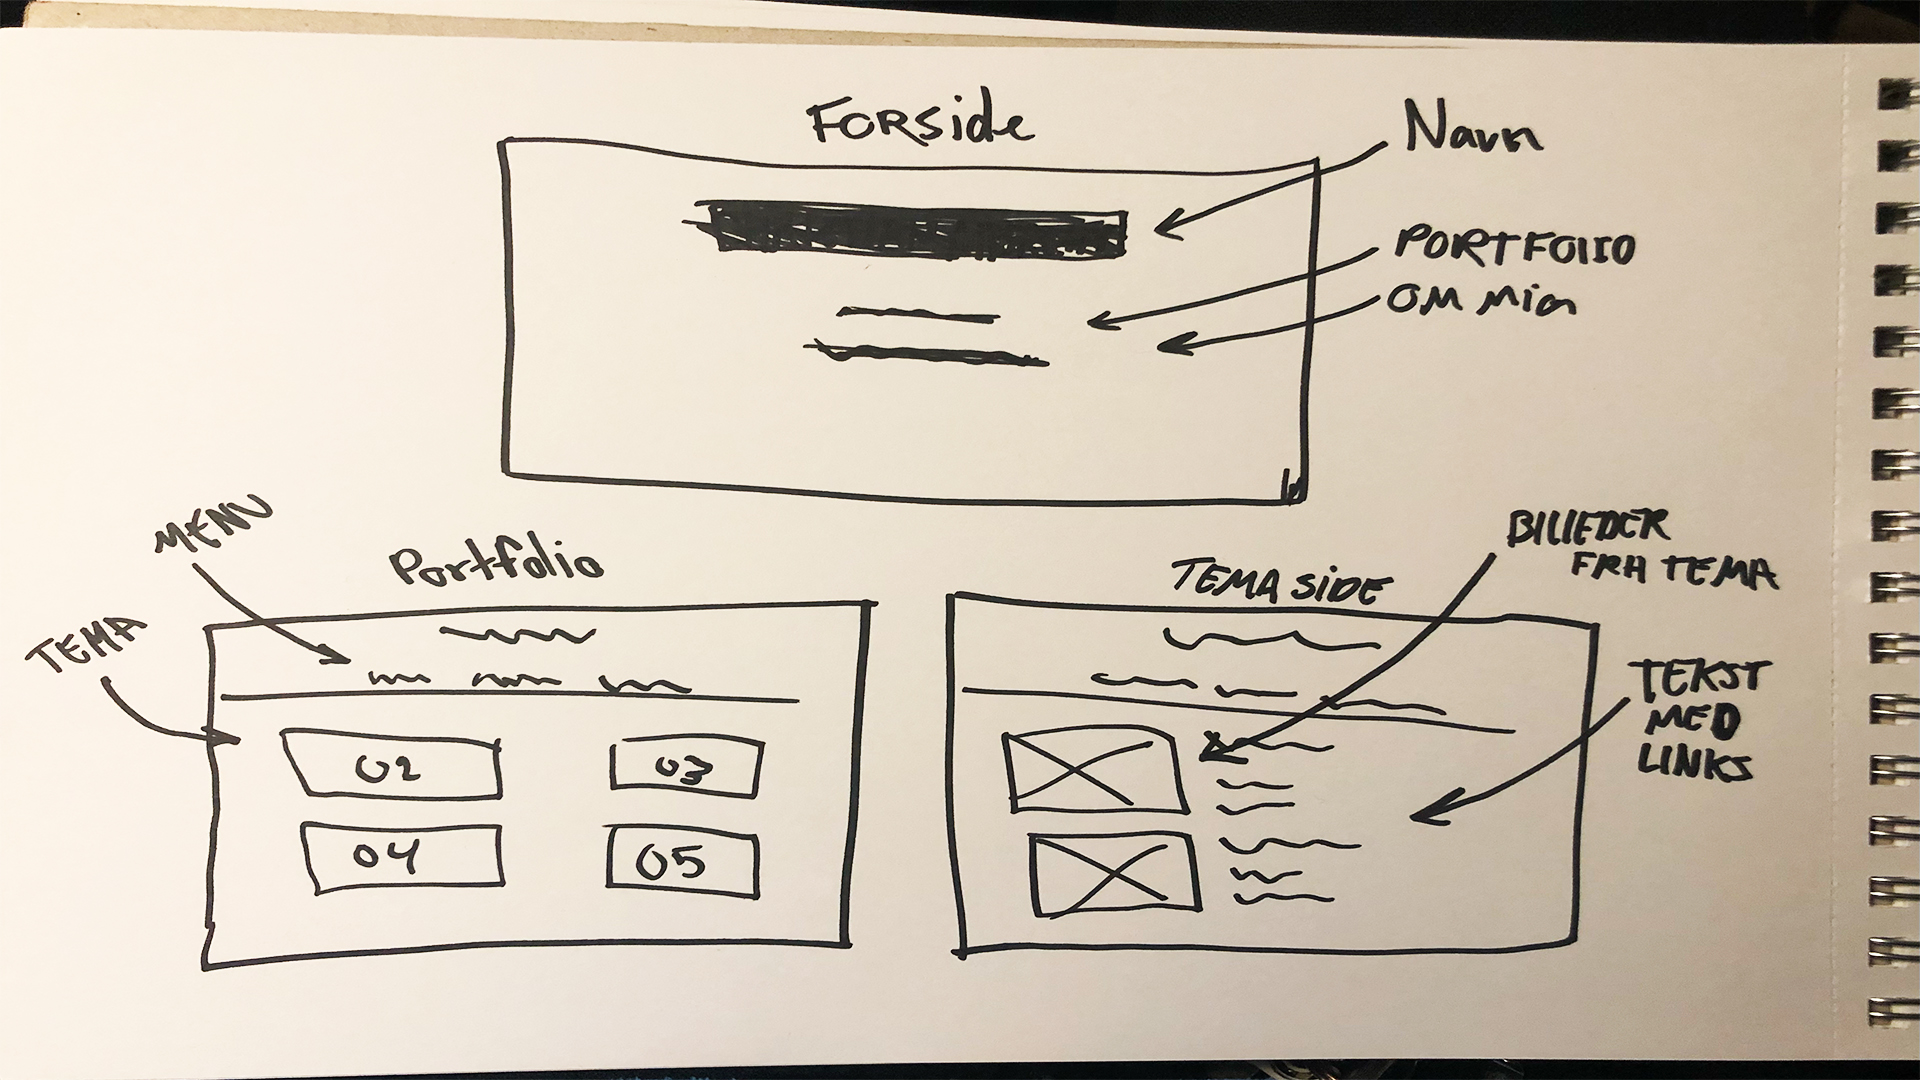 FORSide
Navn
PORTFOLIO
OM Mig
MENU
Portfolio
TEMA
02
03
04
05
TEMA SiDE
BILLEDER
FRA TEMA
TEKST
MED
LINKS